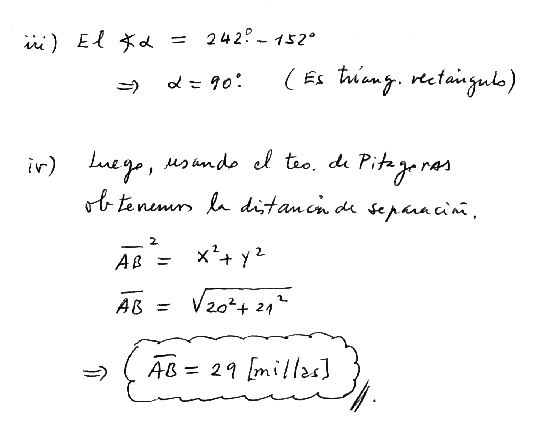 iii) El ∢α = 242° - 152°
⇒ α = 90° (Es triáng. rectángulo)
iv) Luego, usando el teo. de Pitágoras
obtenemos la distancia de separación.
AB² = x² + y²
AB = √20² + 21²
⇒ AB = 29 [millas]